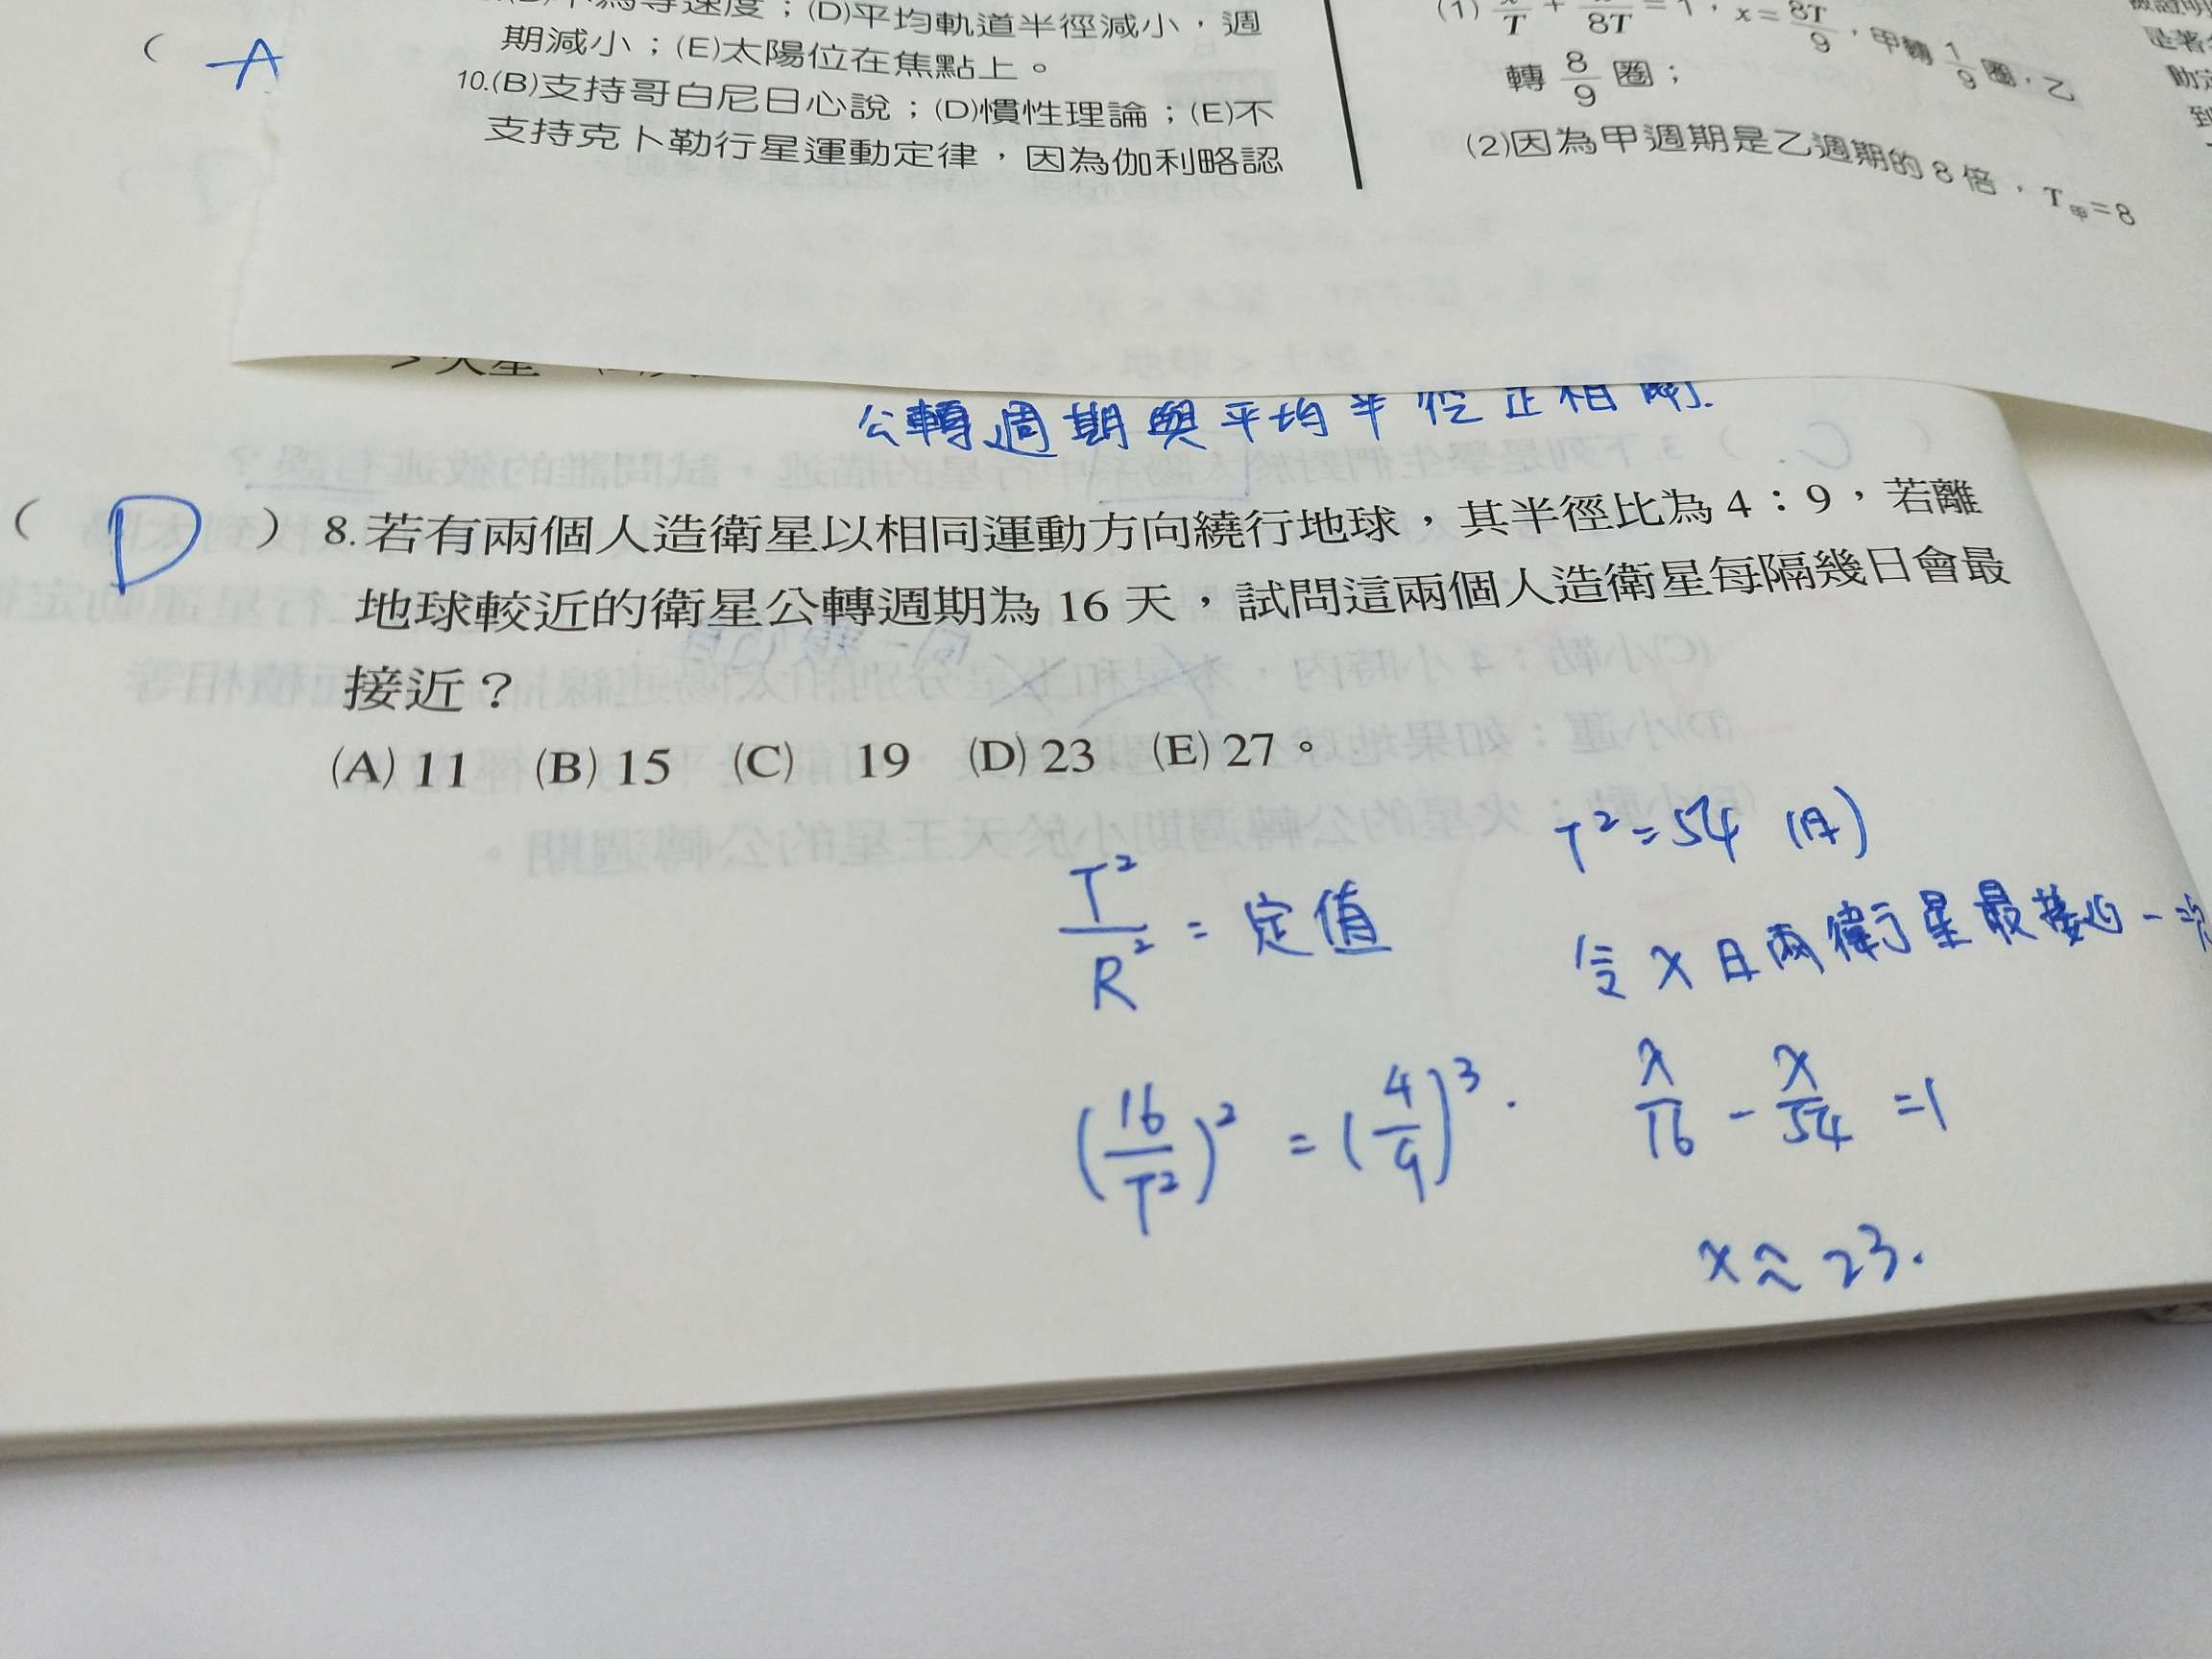 A
(D)平均軌道半徑減小，週
期減小；(E)太陽位在焦點上。
10.(B)支持哥白尼日心說；(D)慣性理論；(E)不
支持克卜勒行星運動定律，因為伽利略認
(1) x/T + x/8T = 1，x = 8T/9，甲轉 1/9 圈，乙
轉 8/9 圈；
(2)因為甲週期是乙週期的 8 倍，T甲=8
公轉週期與平均半徑正相關.
( D ) 8.若有兩個人造衛星以相同運動方向繞行地球，其半徑比為 4：9，若離
地球較近的衛星公轉週期為 16 天，試問這兩個人造衛星每隔幾日會最
接近？
(A) 11 (B) 15 (C) 19 (D) 23 (E) 27。
T²/R² = 定值
(16/T²)² = (4/9)³.
T²=54 (日)
令 x 日兩衛星最接近一次
x/16 - x/54 = 1
x≈23.